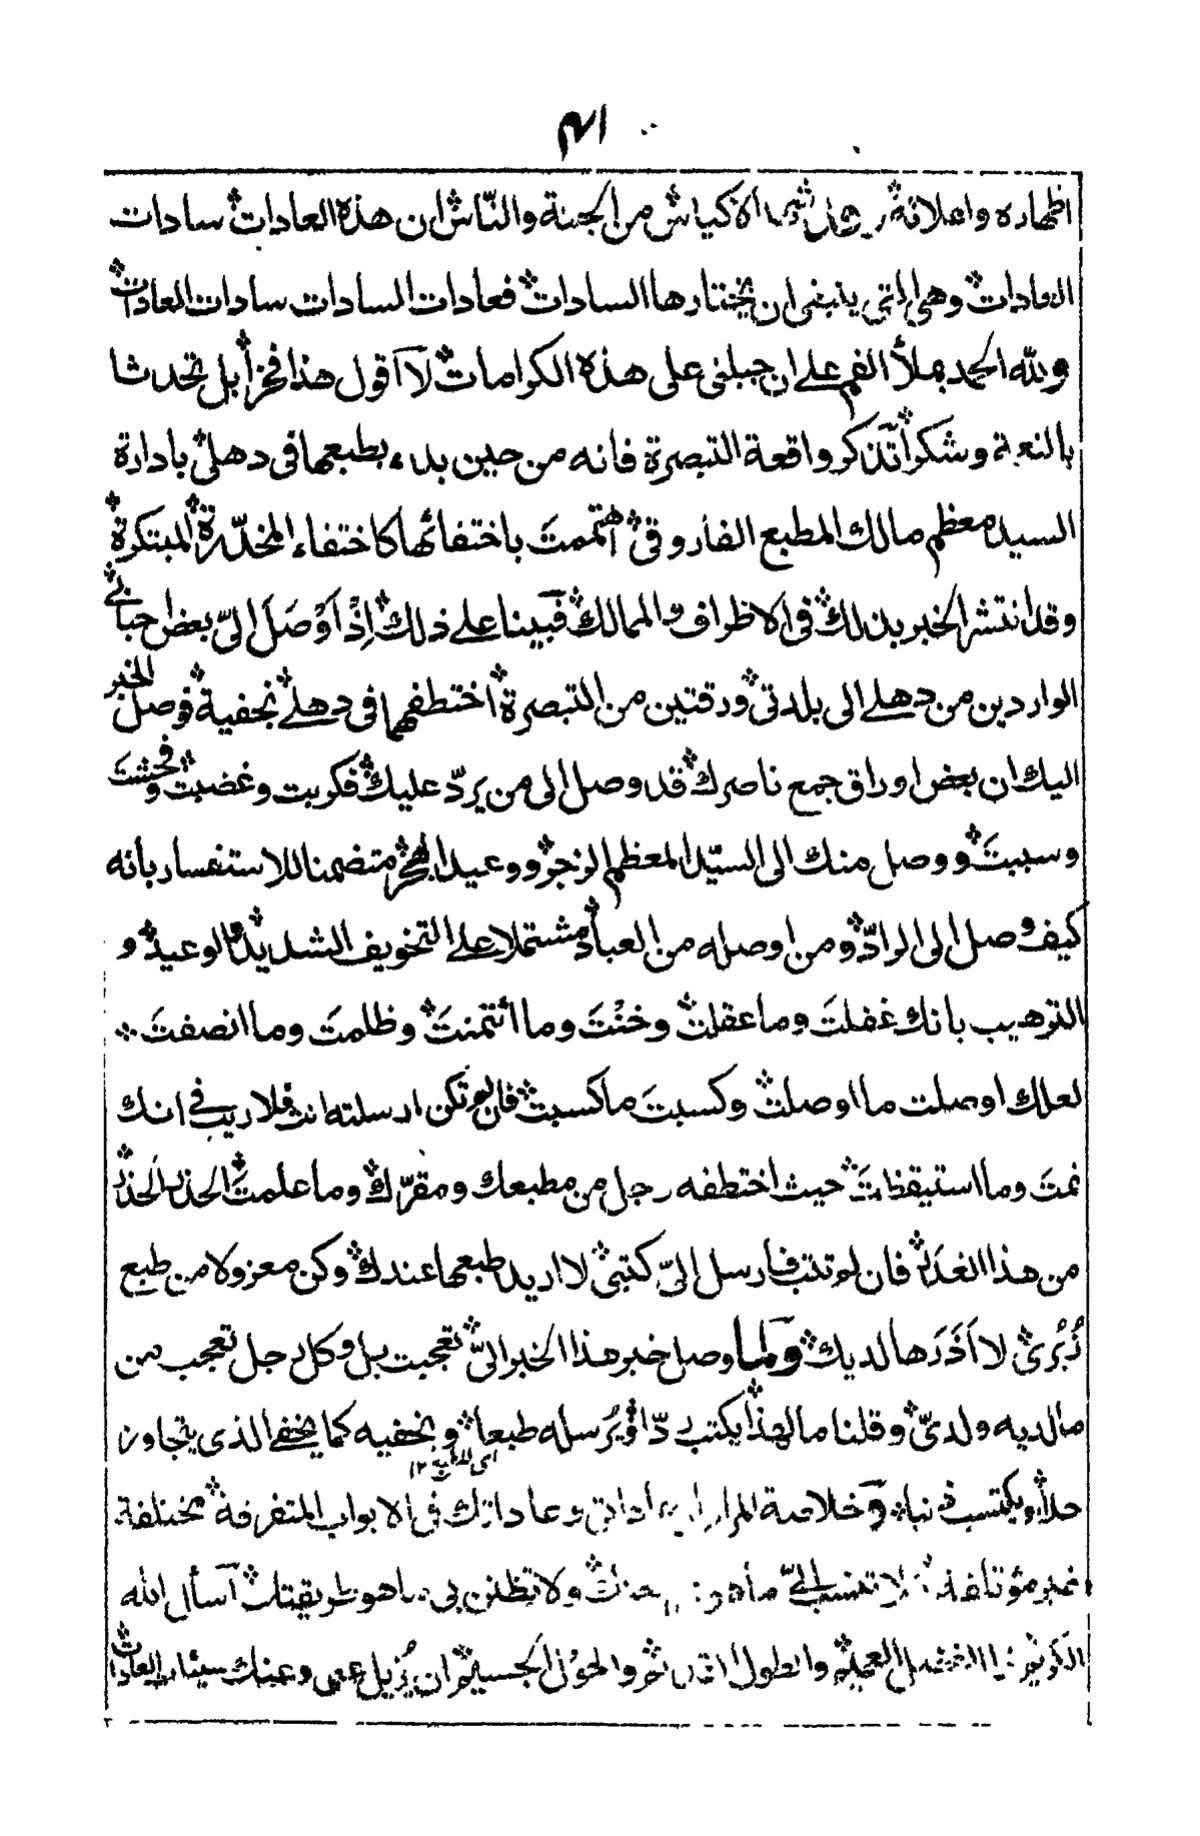 ٤١
اظهاره واعلانه الاكياس من الجنة والناس ان هذه العادات سادات
العادات وهى التى ينبغى ان يختارها السادات فعادات السادات سادات العادات
ولله الحمد بملأ الفم على ان جبلنى على هذه الكرامات لا اقول هذا فخرا بل تحدثا
بالنعمة وشكرا تذكر واقعة التبصرة فانه من حين بدء بطبعها فى دهلى بادارة
السيد معظم مالك المطبع الفاروقى اهتممتَ باختفائها كاختفاء المخدّرة المبتكرة
وقد انتشر الخبر بذلك فى الاطراف والممالك فبينا على ذلك اِذْ اَوْصَلَ الىّ بعض احبابى
الواردين من دهلى الى بلدتى ورقتين من التبصرة اختطفهما فى دهلى بخفية فوصل الخبر
اليك ان بعض اوراق جمع ناصرك قد وصل الى من يردّ عليك فكربت وغضبت وفحشتَ
وسببتَ ووصل منك الى السيّد المعظم الزجر ووعيد الهجر متضمنا للاستفسار بانه
كيف وصل الى الرادّ ومن اوصله من العباد مشتملا على التخويف الشديد والوعيد و
الترهيب بانك غفلتَ وما عقلت وخنْتَ وما ائتمنتَ وظلمتَ وما انصفتَ
لعلك اوصلت ما اوصلت وكسبتَ ما كسبت فان لم تكن ارسلته انت فلا ريب فى انك
نمتَ وما استيقظتَ حيث اختطفه رجل من مطبعك ومقرّك وما علمتَ الحذر الحذر
من هذا الغدر فان لم تتب فارسل الىّ كتبى لا اريد طبعها عندك وكن معزولا من طبع
زُبُرى لا اَذَرها لديك ولما وصل خبر هذا الخبر الىّ تعجبت بل وكل رجل تعجب من
ما لديه ولدىّ وقلنا ما لهذا يكتب ردّا ويُرسله طبعا ويخفيه كما يخفى الذى يتجاوز
اى للطبع ١٢
حدا ويكتسب ذنبا وخلاصة المرام عاداتى وعاداتك فى الابواب المتفرقة مختلفة
غير مؤتلفة لا تنسب الىّ ما هو ولا تظنن بى ما هو طريقتك اسأل الله
الكريم ذا الفضل العميم والطول والحَوْل الجسيم ان يُزيل عنى وعنك سيئات العادات